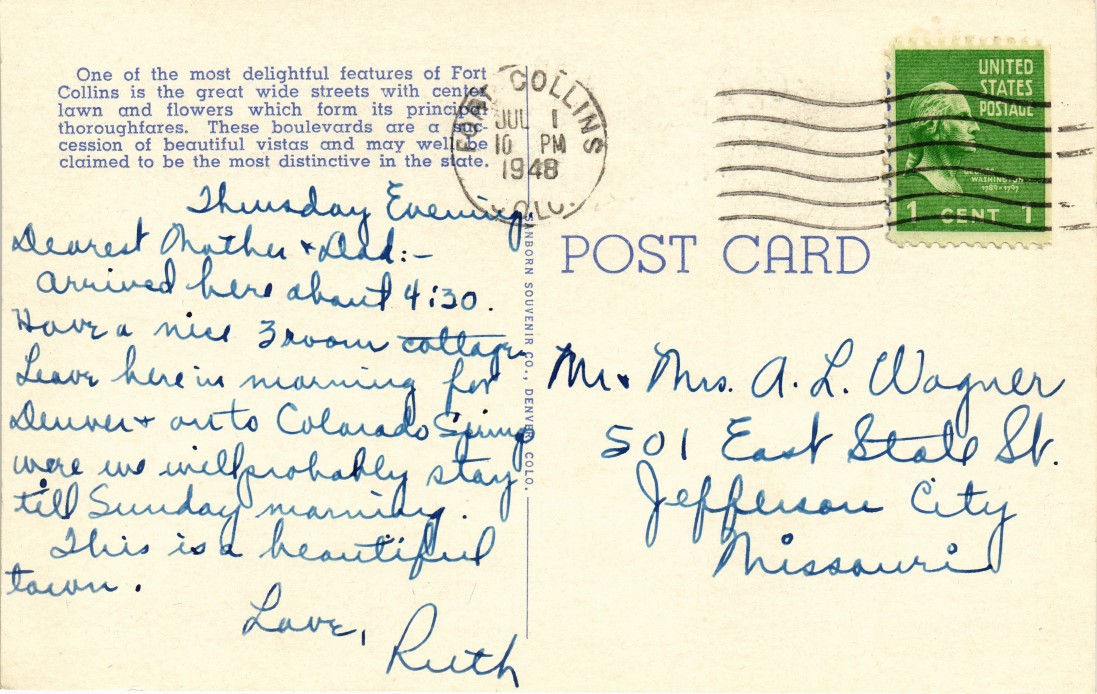 One of the most delightful features of Fort
Collins is the great wide streets with center
lawn and flowers which form its principal
thoroughfares. These boulevards are a suc-
cession of beautiful vistas and may well be
claimed to be the most distinctive in the state.
Thursday Evening
Dearest Mother & Dad:-
Arrived here about 4:30.
Have a nice 3 room cottage
Leave here in morning for
Denver & on to Colorado Springs
were we will probably stay
till Sunday morning.
This is a beautiful
town.
Love,
Ruth
SANBORN SOUVENIR CO., DENVER, COLO.
FORT COLLINS
JUL 1
10 PM
1948
COLO.
UNITED
STATES
POSTAGE
GEORGE
WASHINGTON
1789-1797
1 CENT 1
POST CARD
Mr. Mrs. A. L. Wagner
501 East State St.
Jefferson City
Missouri